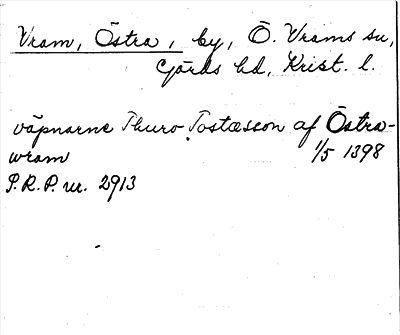 Vram, Östra, by, Ö. Vrams sn,
Gärds hd, Krist. l.
väpnarne Thuro Tostæsson af Östra-
wram 1/5 1398
P.R.P. nr. 2913